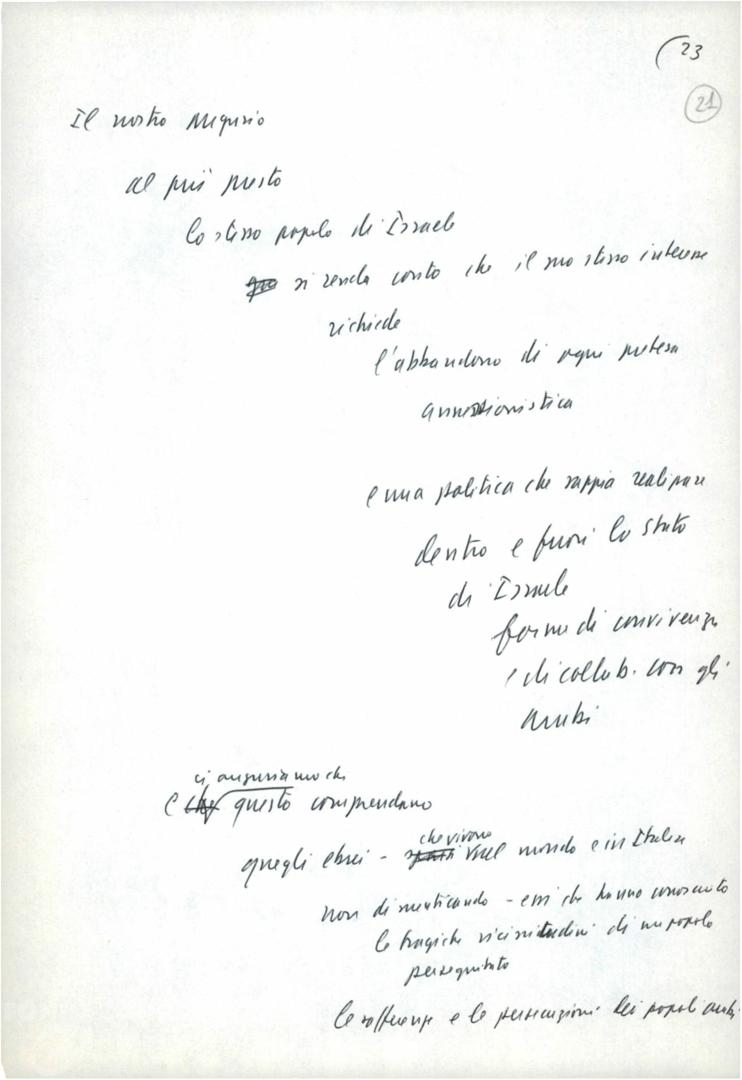 23
21
Il nostro augurio
al più presto
lo stesso popolo di Israele
si renda conto che il suo stesso interesse
richiede
l'abbandono di ogni pretesa
annessionistica
e una politica che sappia realizzare
dentro e fuori lo Stato
di Israele
forme di convivenza
e di collab. con gli
arabi
ci auguriamo che
e che questo comprendano
che vivono
quegli ebrei - sparsi nel mondo e in Italia
non dimenticando - essi che hanno conosciuto
le tragiche vicissitudini di un popolo
perseguitato
le sofferenze e le persecuzioni dei popoli arabi.